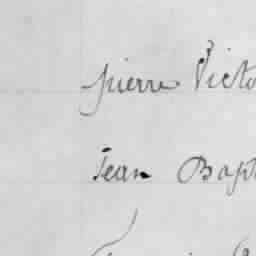 pierre Victo
Jean Bapt